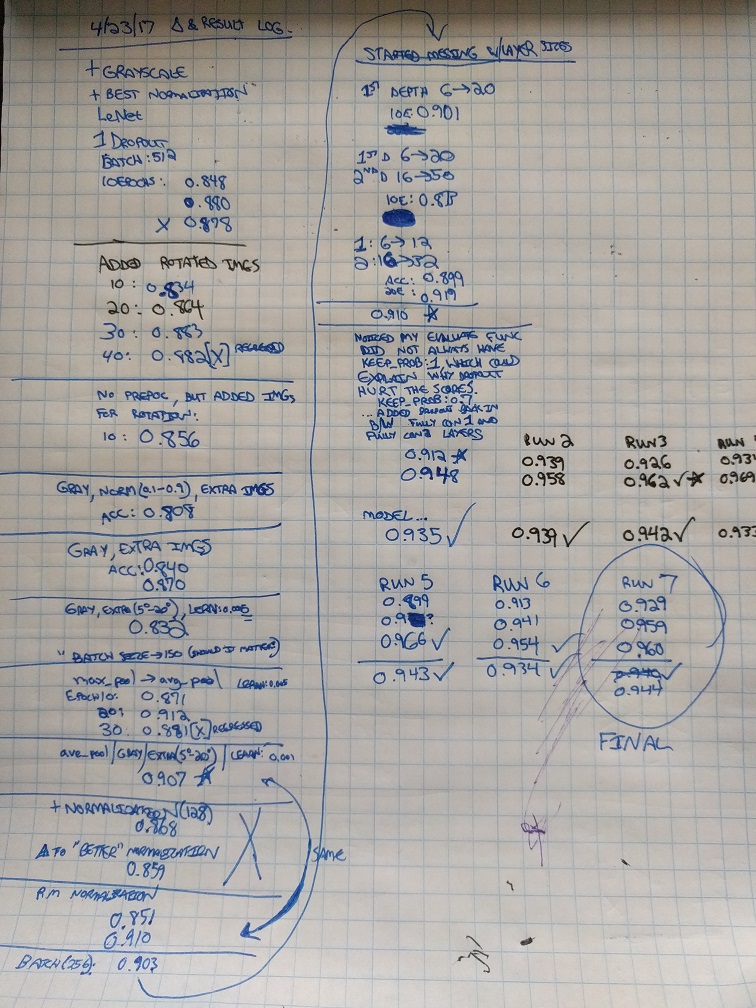 4/23/17 Δ & RESULT LOG.
+ GRAYSCALE
+ BEST NORMALIZATION
LeNet
1 DROPOUT
BATCH: 512
10EPOCHS: 0.848
0.880
X 0.878
ADDED ROTATED IMGS
10: 0.834
20: 0.864
30: 0.883
40: 0.882[X] REGRESSED
NO PREPOC, BUT ADDED IMGS
FOR ROTATION:
10: 0.856
GRAY, NORM(0.1-0.9), EXTRA IMGS
ACC: 0.808
GRAY, EXTRA IMGS
ACC: 0.840
0.870
GRAY, EXTRA(5°-20°), LEARN: 0.005
0.832
" BATCH SIZE → 150 (SHOULD IT MATTER?)
max_pool → avg_pool LEARN: 0.005
EPOCH 10: 0.871
20: 0.912
30: 0.881[X] REGRESSED
ave_pool/GRAY/EXTRA(5°-20°)/LEARN: 0.001
0.907 ☆
+ NORMALIZATION(128)
0.868
Δ TO "BETTER" NORMALIZATION
0.859
SAME
R.M NORMALIZATION
0.851
0.910
BATCH(256): 0.903
STARTED MESSING W/LAYER SIZES
1ST DEPTH 6→20
10E: 0.901
1ST D 6→20
2ND D 16→50
10E:
1: 6→12
2: 16→32
ACC: 0.899
20E: 0.919
0.910 ☆
NOTICED MY EVALUATE FUNC
DID NOT ALWAYS HAVE
KEEP_PROB: 1, WHICH COULD
EXPLAIN WHY DROPOUT
HURT THE SCORES.
KEEP_PROB: 0.7
... ADDED DROPOUT BACK IN
B/W FULLY CON 1 AND
FULLY CON 2 LAYERS
0.912 ☆
0.948
RUN 2
0.939
0.958
RUN 3
0.926
0.962 ✓ ☆
RUN
0.93
0.969
MODEL...
0.935 ✓ 0.939 ✓ 0.942 ✓ 0.933
RUN 5
0.899
0.966 ✓
0.943 ✓
RUN 6
0.913
0.941
0.954 ✓
0.934 ✓
RUN 7
0.929
0.959
0.960
0.940 ✓
0.944
FINAL